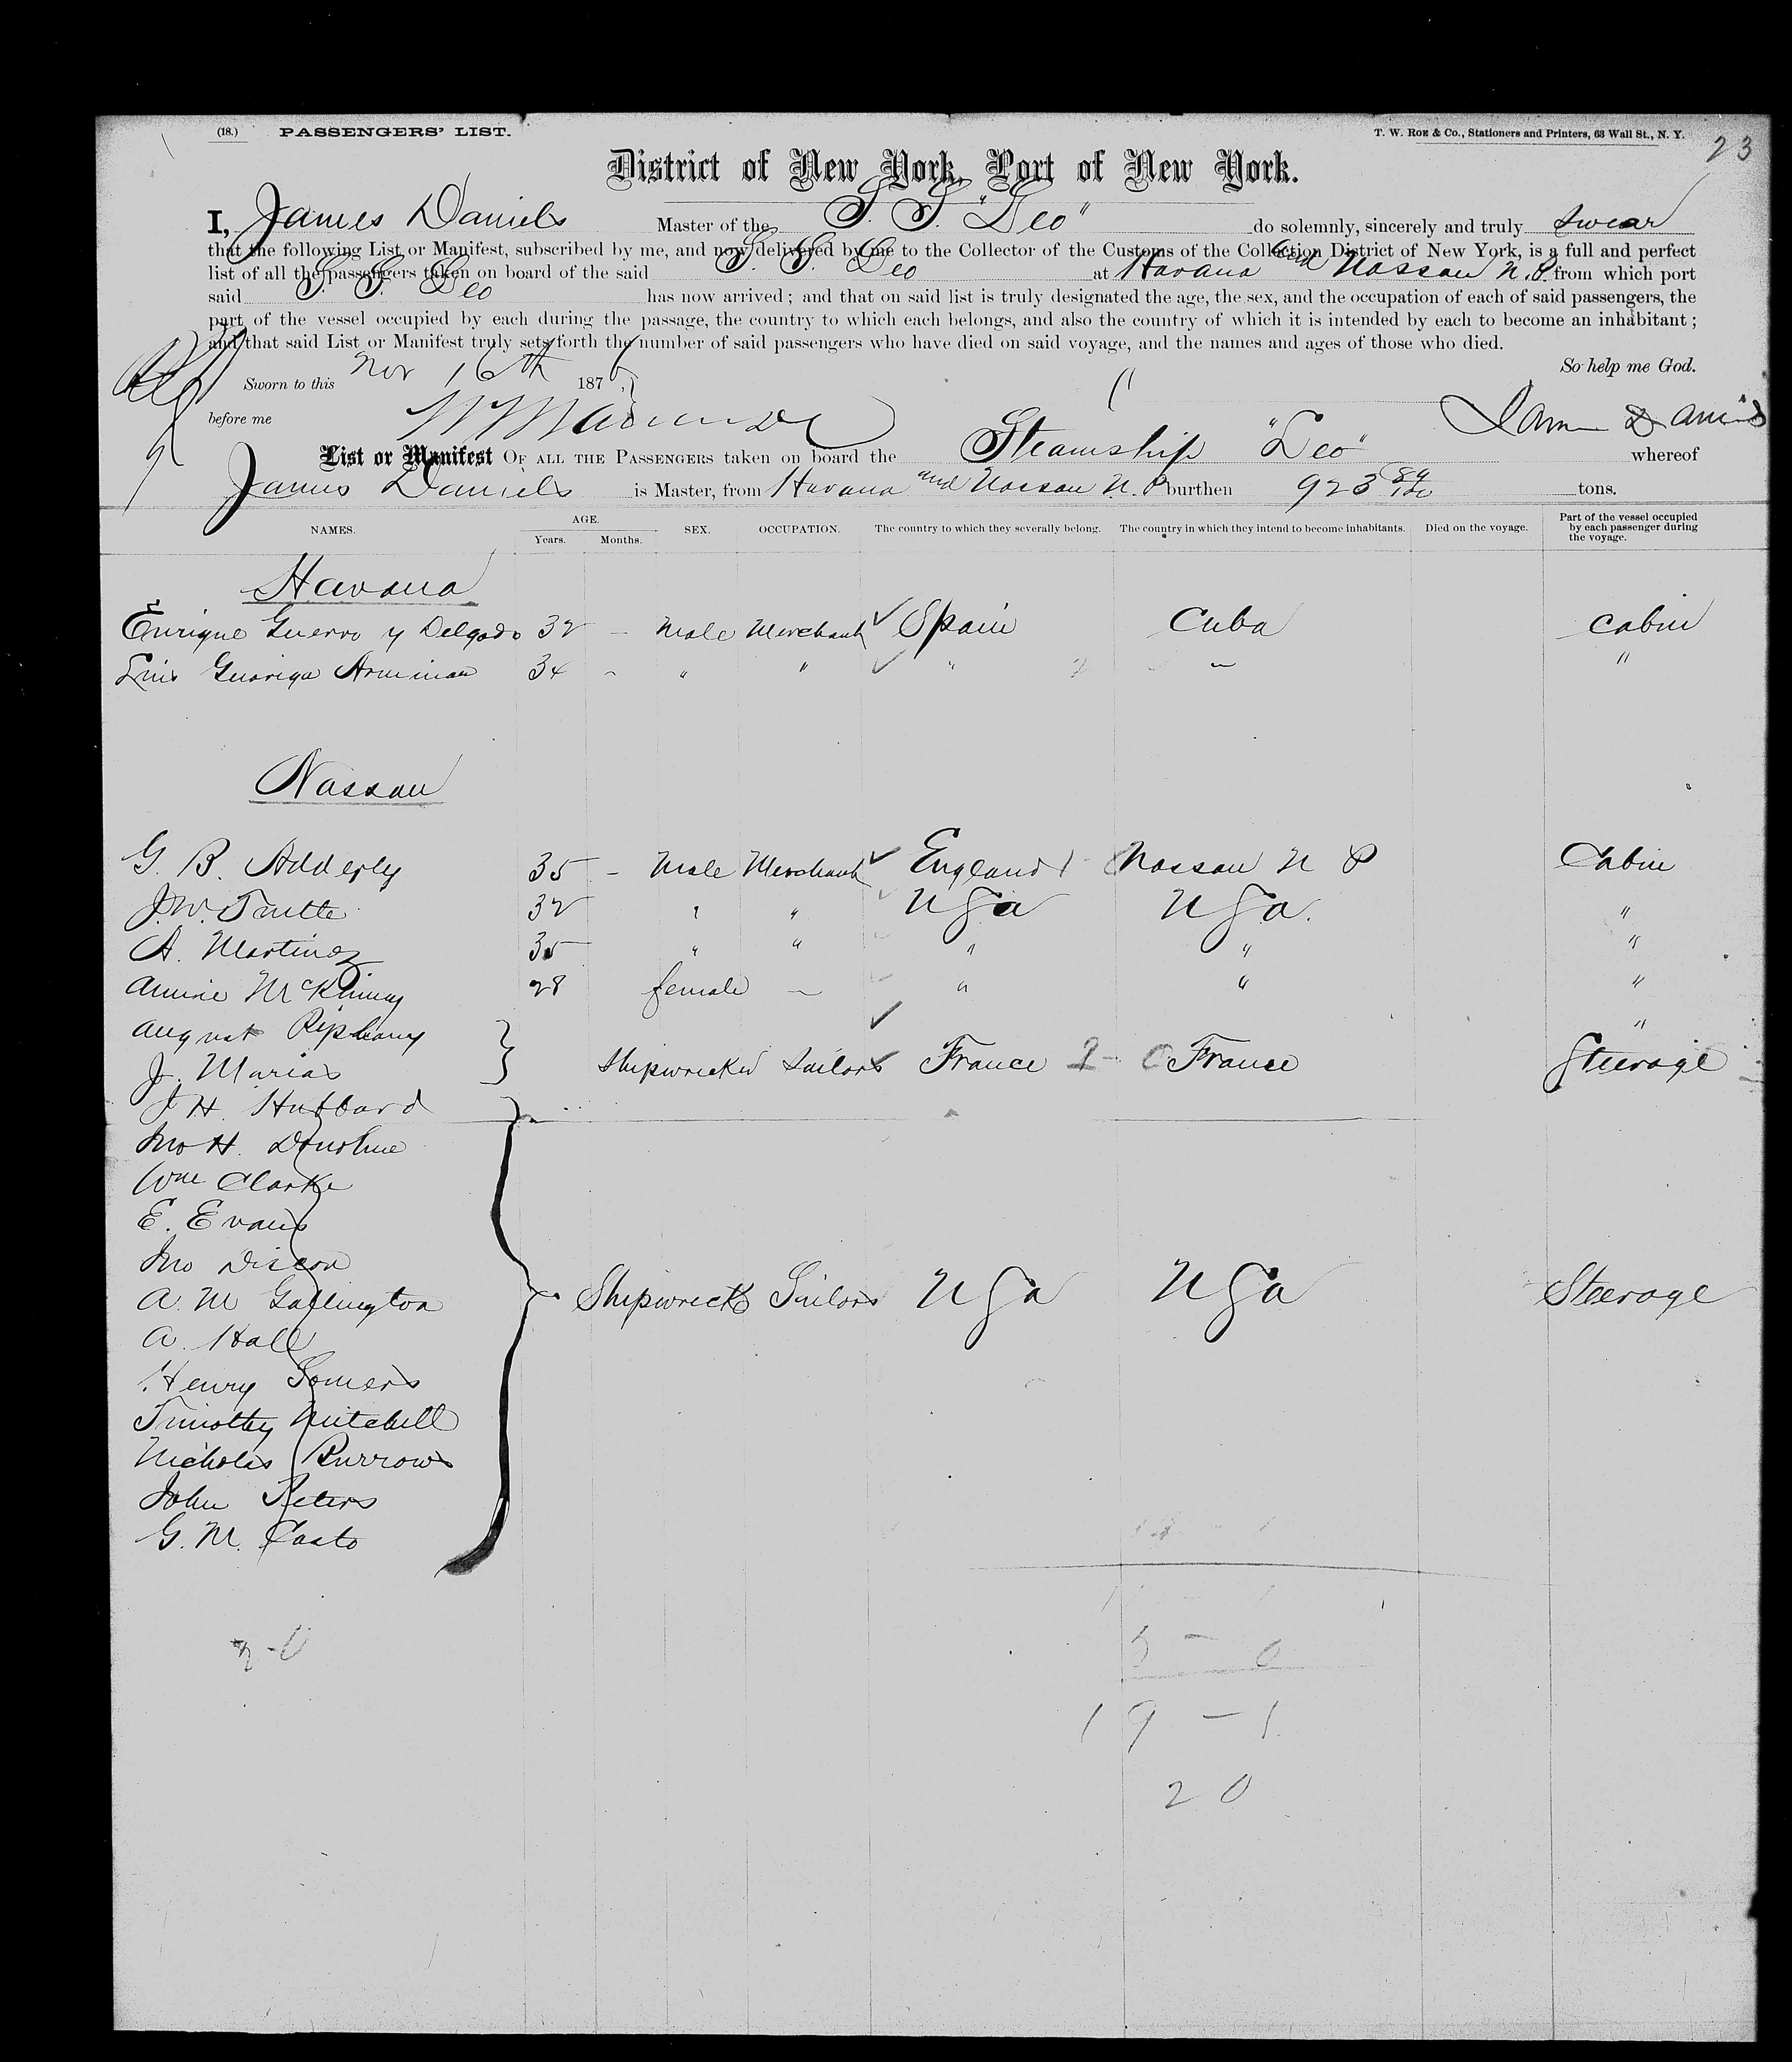 (18.) PASSENGERS' LIST. T. W. ROE & Co., Stationers and Printers, 63 Wall St., N. Y. 23
District of New York, Port of New York.
I, James Daniels Master of the S. S. "Leo" do solemnly, sincerely and truly swear
that the following List or Manifest, subscribed by me, and now delivered by me to the Collector of the Customs of the Collection District of New York, is a full and perfect
list of all the passengers taken on board of the said S. S. Leo at Havana and Nassau N. P. from which port
said S. S. Leo has now arrived; and that on said list is truly designated the age, the sex, and the occupation of each of said passengers, the
part of the vessel occupied by each during the passage, the country to which each belongs, and also the country of which it is intended by each to become an inhabitant;
and that said List or Manifest truly sets forth the number of said passengers who have died on said voyage, and the names and ages of those who died.
So help me God.
Sworn to this Nov 16th 1876
before me
List or Manifest OF ALL THE PASSENGERS taken on board the Steamship "Leo" whereof
James Daniels is Master, from Havana and Nassau N. P burthen 923 84/100 tons.
NAMES. AGE. Years. Months. SEX. OCCUPATION. The country to which they severally belong. The country in which they intend to become inhabitants. Died on the voyage. Part of the vessel occupied by each passenger during the voyage.
Havana
Enrique Guerro y Delgado 32 - Male Merchant Spain Cuba Cabin
Luis 34 - " " " " "
Nassau
G. B. Adderley 35 - Male Merchant England Nassau N P Cabin
J. W. 32 " " U S a U S a. "
A. Martinez 35 " " " " "
Annie McKinney 28 female - " " "
August "
J. Marias Shipwrecked Sailors France 2 - 0 France Steerage
J H. Hubbard
Jno H. Donohue
Wm Clarke
E. Evans
Jno
A. M Shipwreck Sailors U S a U S a Steerage
A. Hall
Henry Somers
Timothy Mitchell
Nicholas Burrows
John Peters
G. M. Casto
5 - 0
19 - 1
20